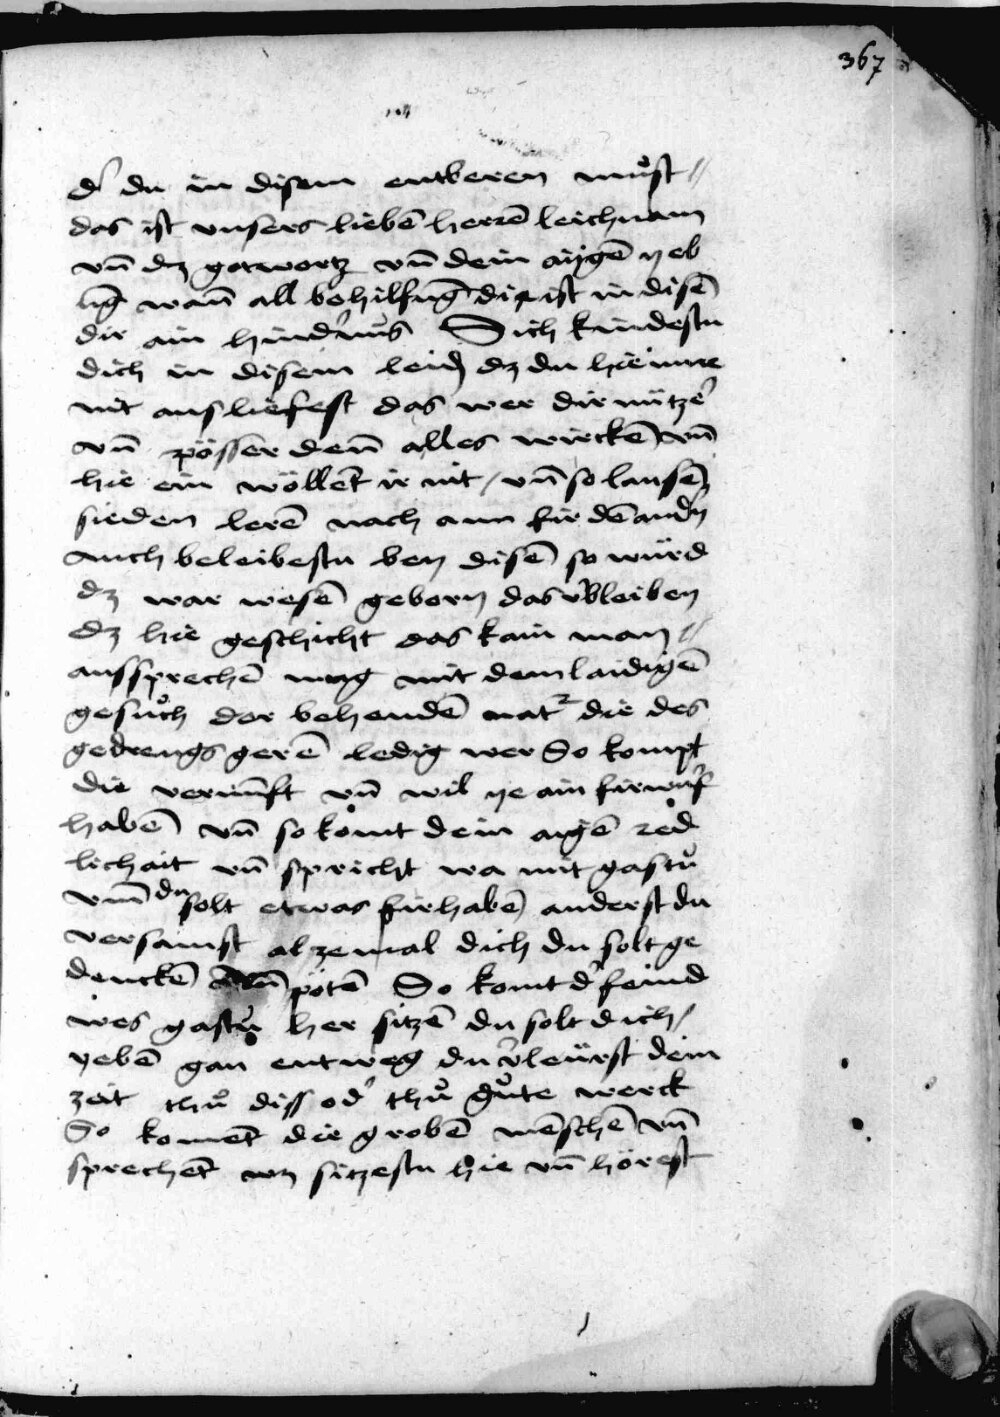 367
d' du in disem entberen muͦst //
das ist vnsers liebē herrē leichnam
vn̄ dz gotwortz vn̄ dein aygē yeb
ūg wan̄ all behilfūg die ist in disē
dir ain hind'nus Sich kindestu
dich in disem leidē dz du hie inne
nit aus liefest das wer dir nütze'
vn̄ pösser den̄ alles wirckē vn̄
hie ein wöllēt ir nit / vn̄ so lausē
sieden lerē nach ann fir dē and'n
Auch beleibestu bey disē so würd
dz war wesē geborn das v'bleiben
dz hie geschicht das kain man //
aussprechē mag mit dem laidigē
gesuͦch der behendē nat' die des
gedrengs gerē ledig wer So kompt
die vernūft vn̄ wil ye ain fürwurf
habē vn̄ so komt dein aigē red
lichait vn̄ spricht wa mit gastu
vm̄ du solt etwas fürhabē anderst du
versaimst alzemal dich du solt ge
denckē vn̄ pötē So komt d' feind
wes gastu her sitzē du solt dich /
yebē gan entweg du v'leurst dein
zeit thuͦ diss od' thuͦ guͦte werck
So komēt die grobē mēschē vn̄
sprechēt wz sitzestu hie vn̄ hörest